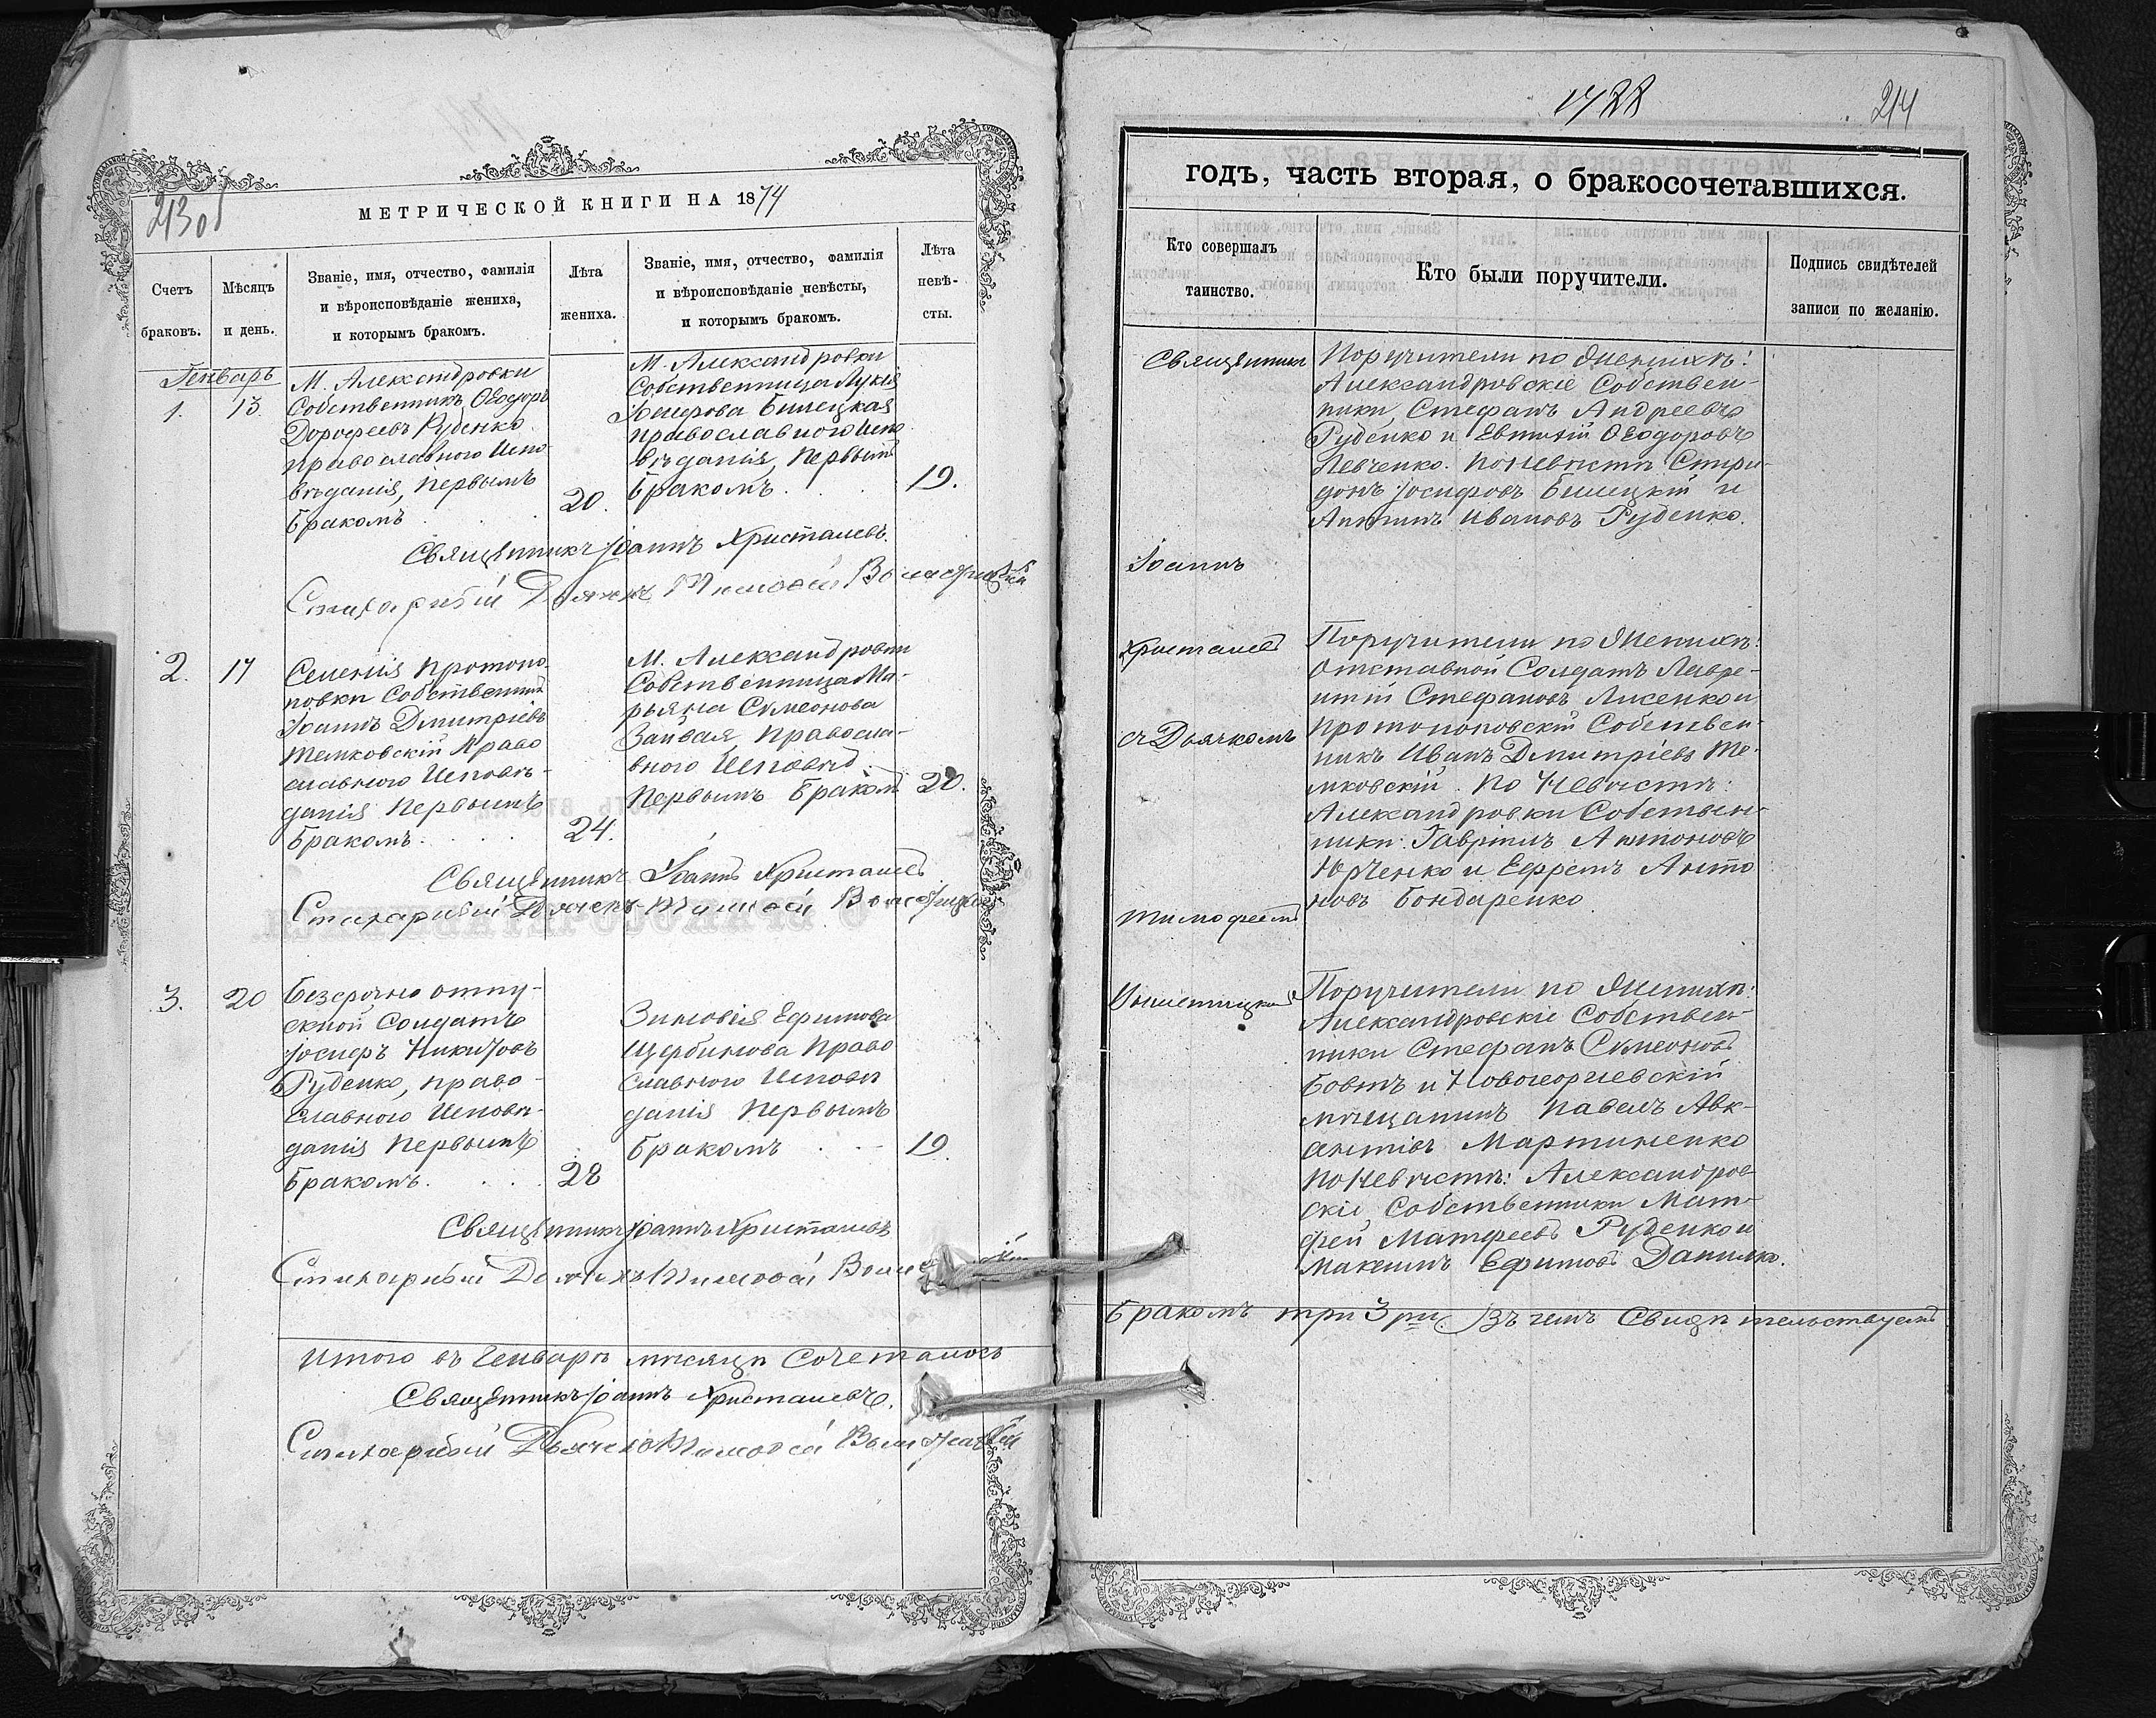 213 об
МЕТРИЧЕСКОЙ КНИГИ НА 1874
Счетъ
браковъ.
Мѣсяцъ
и день.
Званіе, имя, отчество, фамилія
и вѣроисповѣданіе жениха,
и которымъ бракомъ.
Лѣта
жениха.
Званіе, имя, отчество, фамилія
и вѣроисповѣданіе невѣсты,
и которымъ бракомъ.
Лѣта
невѣ-
сты.
Генварь
1.
13.
М. Александровки
Собственникъ Ѳеодоръ
Дорофеевъ Руденко
православного Испо
вѣданія, первымъ
бракомъ
20.
М. Александровки
Собственница Лукія
Іосифова Билецкая
православного Испо
вѣданія, первымъ
бракомъ
19.
Священникъ Іоаннъ Христалевъ.
Стихарный Дьячекъ Тимоѳей
2.
17
Селенія Протопо-
повки Собственникъ
Іоаннъ Дмитріевъ
Темковскій Право
славного Исповѣ-
данія Первымъ
Бракомъ.
24.
М. Александровки
Собственница Ма-
рьяна Симеонова
Заивая Правосла-
вного Исповѣд.
Первымъ Бракомъ
20.
Священникъ Іоаннъ Христалевъ
Стихарный Дьячекъ Тимоѳей
3.
20
Безсрочно отпу-
скной Солдатъ
Іосифъ Никитовъ
Руденко, право-
славного Исповѣ-
данія Первымъ
Бракомъ.
28
Зиновія Ефимова
Щербинова Право
славного Исповѣ
данія Первымъ
Бракомъ
19.
Священникъ Іоаннъ Христалевъ
Стихарный Дьячекъ Тимоѳей
Итого въ Генварѣ мѣсяцѣ Сочеталось
Священникъ Іоаннъ Христалевъ.
Стихарный Дьячекъ Тимоѳей
1728
214
годъ, часть вторая, о бракосочетавшихся.
Кто совершалъ
таинство.
Кто были поручители.
Подпись свидѣтелей
записи по желанію.
Священникъ
Іоаннъ
Христалевъ
съ Дьячкомъ
Тимофеемъ
Поручители по Женихѣ:
Александровскіе Собствен-
ники, Стефанъ Андреевъ
Руденко и Евтихій Ѳеодоровъ
Левченко. По Невѣстѣ Спири-
донъ Іосифовъ Билецкій и
Антипъ Ивановъ Руденко.
Поручители по Женихѣ:
Отставной Солдатъ Лавре-
нтій Стефановъ Лисенко и
Протопоповскій Собствен-
никъ Иванъ Дмитріевъ Те-
мковскій. По Невѣстѣ:
Александровки Собствен-
ники: Гавріилъ Антоновъ
Юрченко и Ефремъ Анто
новъ Бондаренко
Поручители по Женихѣ:
Александровскіе Собствен-
ники Стефанъ Симеоновъ
Бовтъ и Новогеоргіевскій
мѣщанинъ Павелъ Авк-
сентіевъ Мартиненко
По Невѣстѣ: Александров-
скіе Собственники Мат-
фей Матфеевъ Руденко и
Максимъ Ефимовъ Данилко.
Бракомъ три 3 ри. Въ чемъ Свидѣтельствуемъ